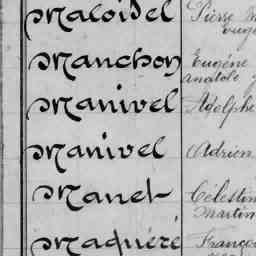 Maloisel Pierre
Manchon Eugène
anatole
Manivel Adolphe
Manivel Adrien
Manet Célestin
Martin
Maquéré Franço